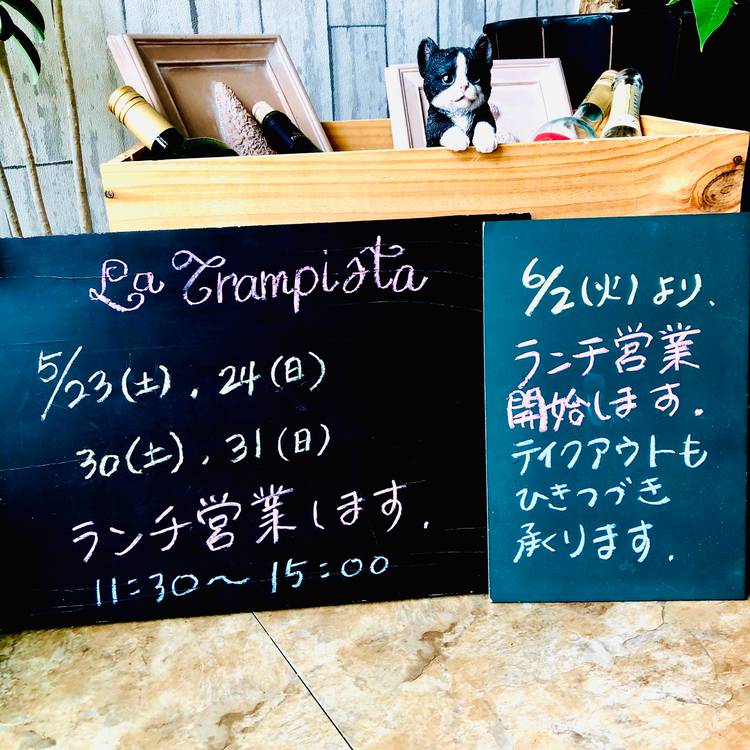 La Trampista
5/23(土)、24(日)
30(土)、31(日)
ランチ営業します.
11:30～15:00
6/2(火)より、
ランチ営業
開始します.
テイクアウトも
ひきつづき
承ります.